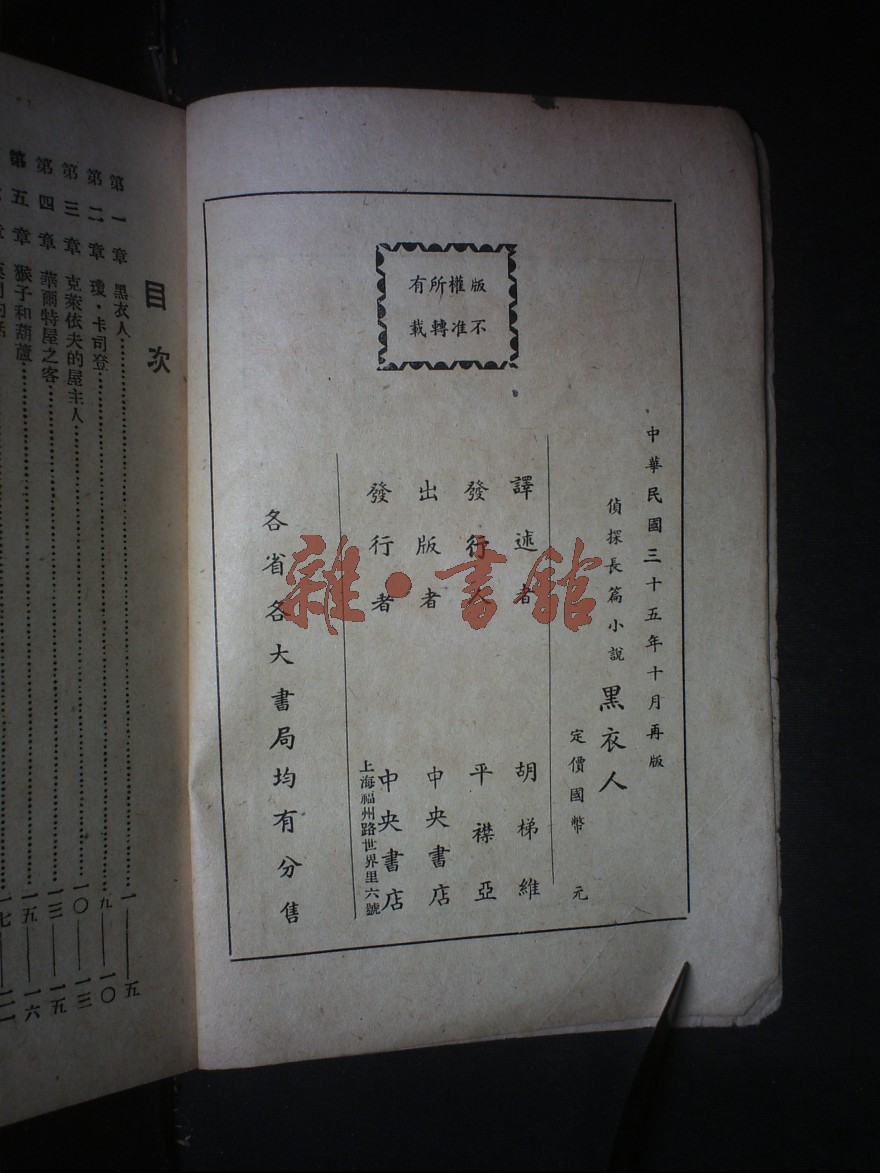 版權所有
不准轉載
中華民國三十五年十月再版
偵探長篇小說 黑衣人
定價國幣 元
譯述者 胡梯維
發行人 平襟亞
出版者 中央書店
發行者 中央書店
上海福州路世界里六號
各省各大書局均有分售
雜·書館
目次
第一章 黑衣人……一——五
第二章 瓊·卡司登……九——一〇
第三章 克萊依夫的屋主人……一〇——一三
第四章 華爾特屋之客……一三——一五
第五章 猴子和葫蘆……一五——一六